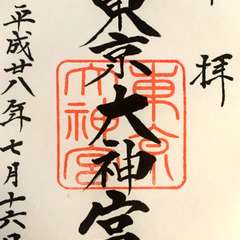 奉拝
東京大神宮
東京大神宮
平成廿八年七月十六日